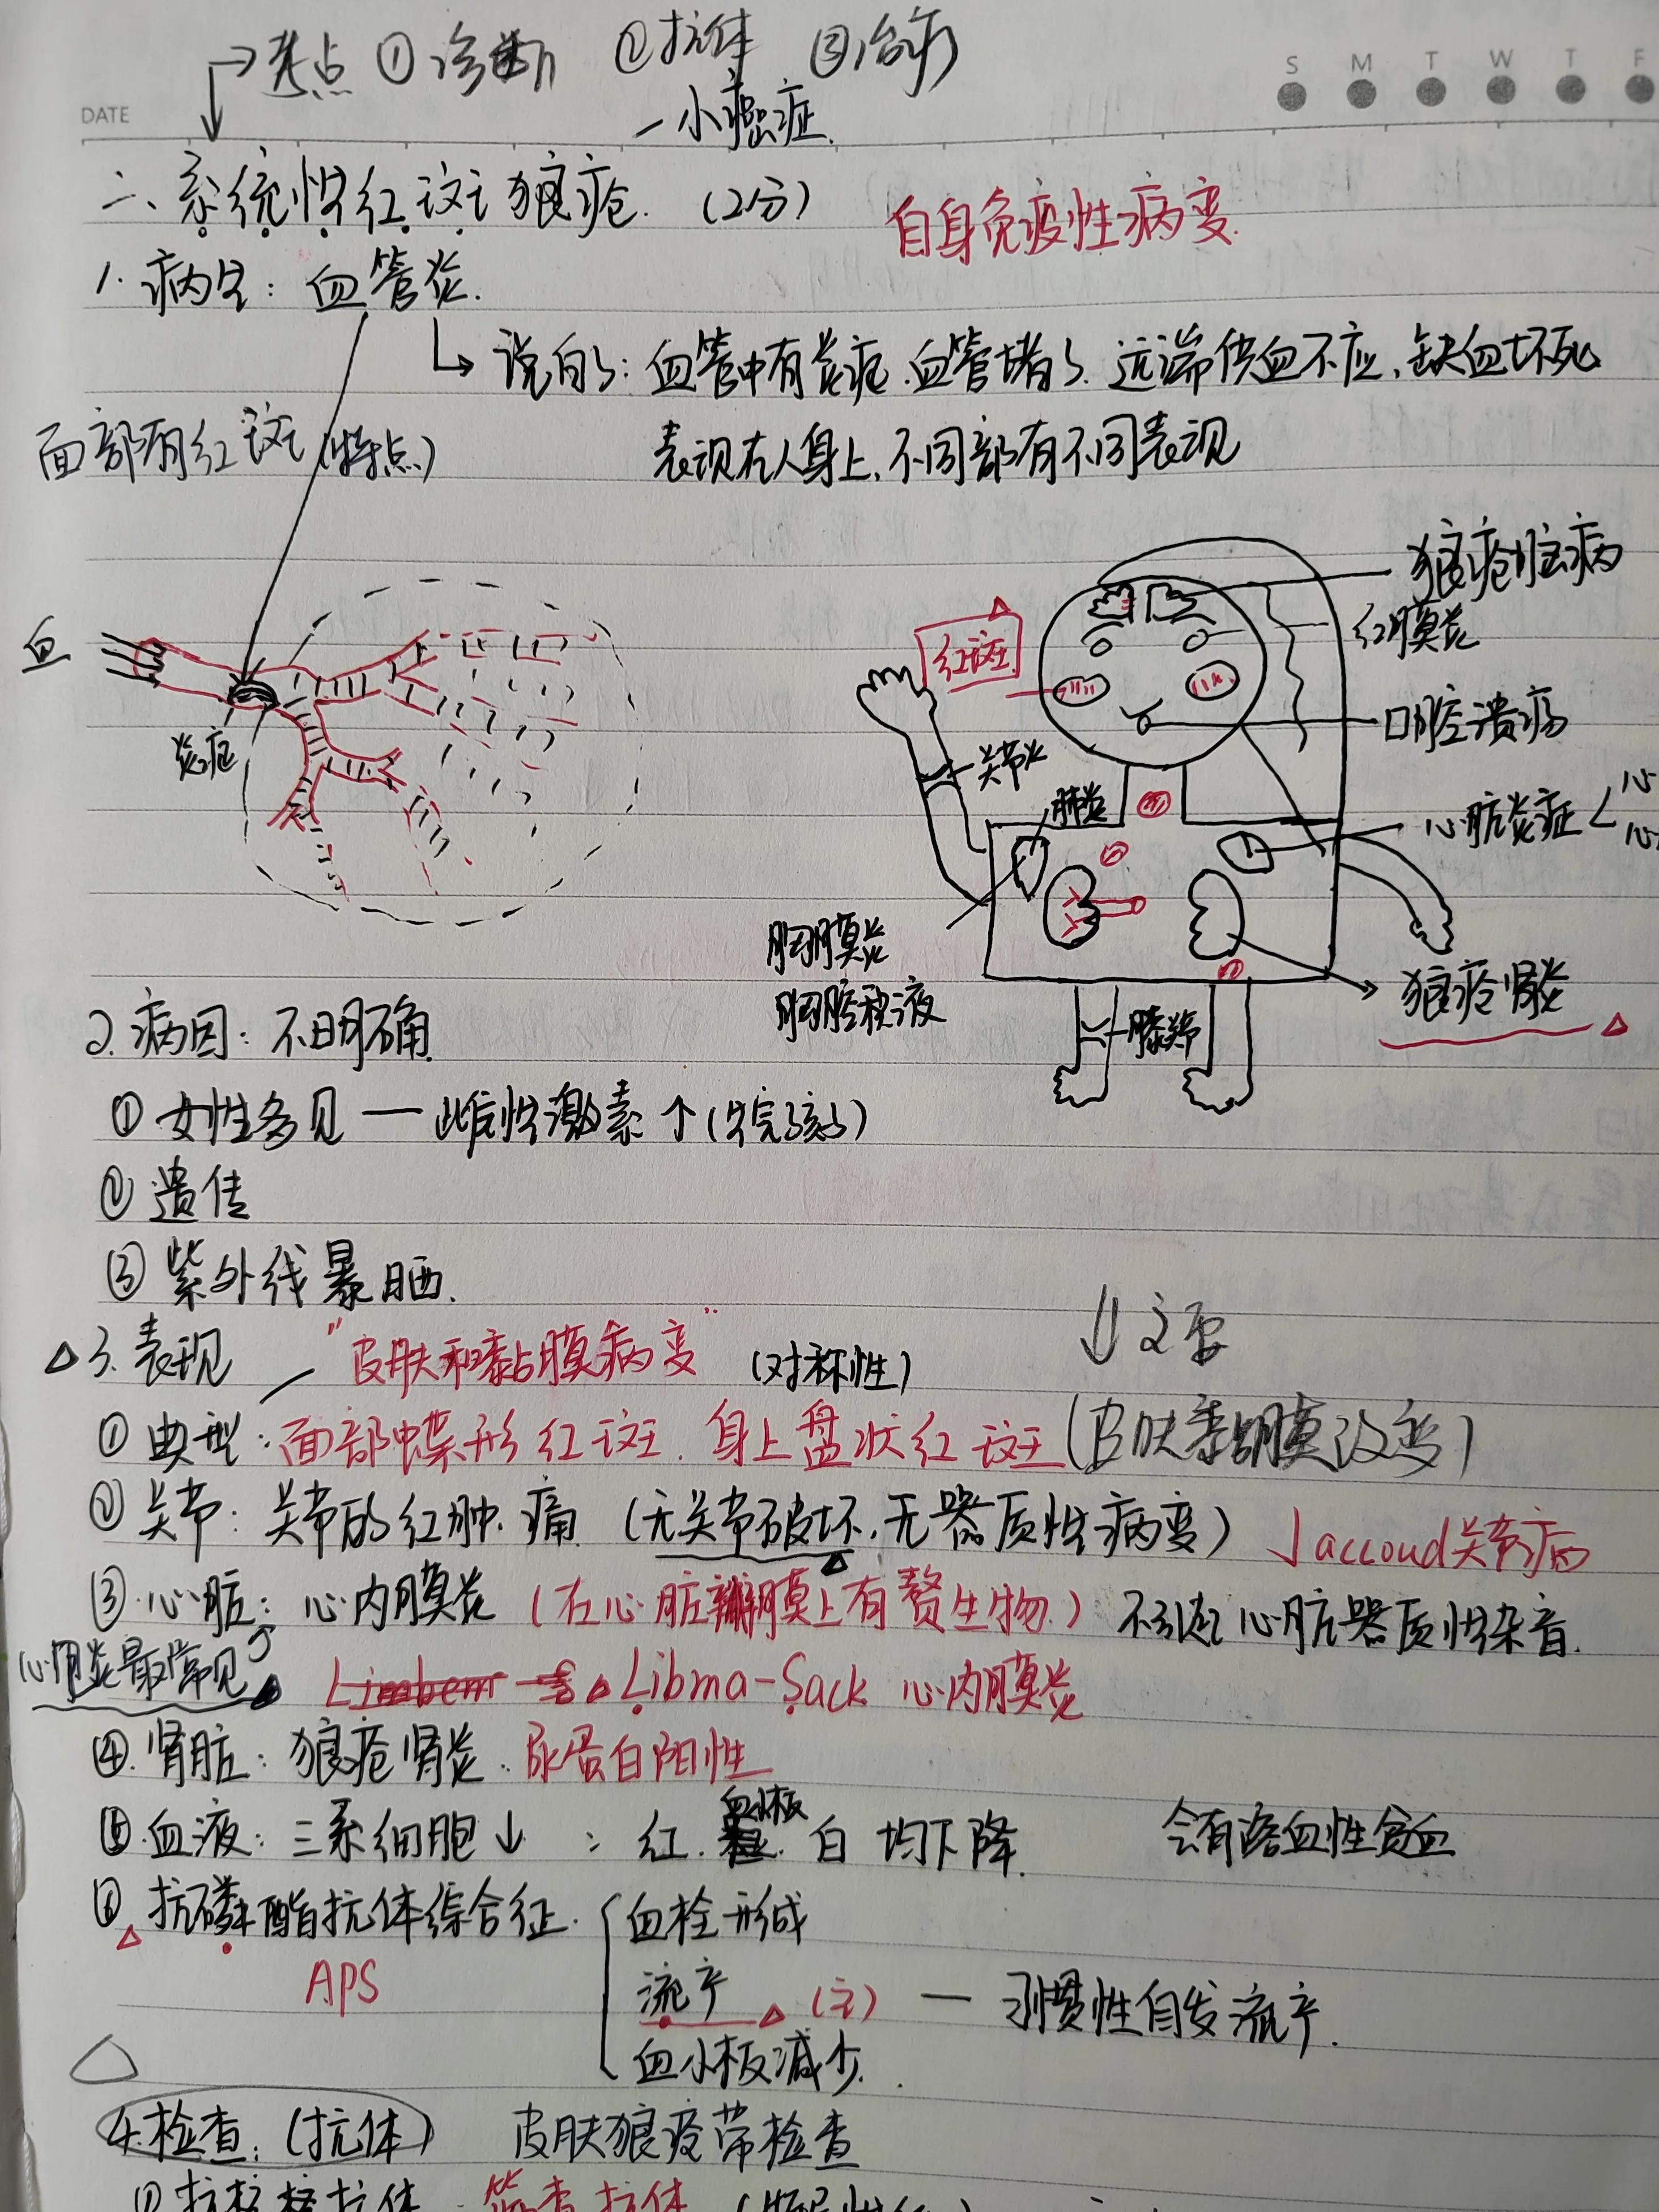 →考点 ①诊断 ②抗体 ③治疗
S M T W T F
DATE
一小癌症
二、系统性红斑狼疮. (2分)
自身免疫性病变
1. 病生: 血管炎.
说白了: 血管中有炎症.血管堵了.远端供血不应,缺血坏死
面部有红斑(特点)
表现在人身上,不同部有不同表现
狼疮脑病
血
红斑
红膜炎
炎症
口腔溃疡
关节炎
肺炎
心脏炎症
胸膜炎
胸腔积液
狼疮肾炎
膝关节
2. 病因: 不明确
①女性多见 — 雌性激素↑(生完孩子)
②遗传
③紫外线暴晒.
↓次要
3. 表现 "皮肤和黏膜病变" (对称性)
①典型: 面部蝶形红斑. 身上盘状红斑(皮肤黏膜改变)
②关节: 关节的红肿.痛 (无关节破坏,无器质性病变) ↓accoud关节病
③心脏: 心内膜炎 (在心脏瓣膜上有赘生物) 不引起心脏器质性杂音.
心包炎最常见
Libma-Sack 心内膜炎
④.肾脏: 狼疮肾炎.尿蛋白阳性
⑤.血液: 三系细胞↓ : 红.血小板.白 均下降. 会有溶血性贫血
⑥抗磷酯抗体综合征. 血栓形成
APS
流产 (主) — 习惯性自发流产.
血小板减少.
4.检查: (抗体) 皮肤狼疫带检查
①抗核抗体 筛查抗体